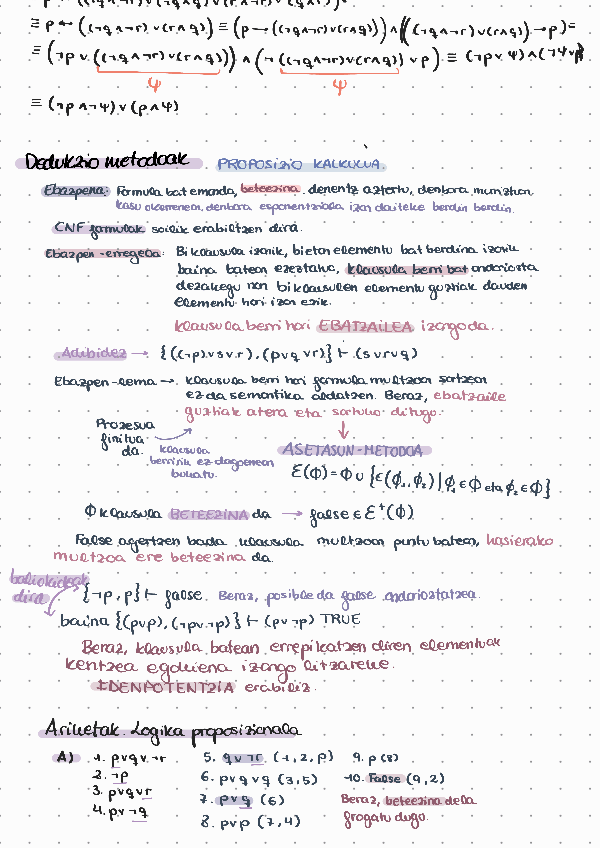 ≡ p ↔ ((¬q∧¬r)∨(r∧q)) ≡ (p → ((¬q∧¬r)∨(r∧q))) ∧ (((¬q∧¬r)∨(r∧q)) → p) ≡
≡ (¬p ∨ ((¬q∧¬r)∨(r∧q))) ∧ (¬((¬q∧¬r)∨(r∧q)) ∨ p) ≡ (¬p∨Ψ)∧(¬Ψ∨p)
Ψ Ψ
≡ (¬p∧¬Ψ)∨(p∧Ψ)
Dedukzio metodoak. PROPOSIZIO KALKULUA.
Ebazpena: Formula bat emanda, beteezina denentz aztertu, denbora
kasu okerrenean denbora esponentziala izan daiteke berdin berdin.
CNF formulak soilik erabiltzen dira.
Ebazpen-erregela: Bi klausula izanik, bietan elementu bat berdina izanik
baina batean ezeztatuta, klausula berri bat ondoriozta
dezakegu non bi klausulen elementu guztiak dauden
elementu hori izan ezik.
klausula berri hori EBATZAILEA izango da.
Adibidez → {((¬p)∨s∨r), (p∨q∨r)} ⊢ (s∨r∨q)
Ebazpen-lema → klausula berri hori formula multzoan sartzean
ez da semantika aldatzen. Beraz, ebatzaile
guztiak atera eta sartuko ditugu.
Prozesua
finitua
da
klausula
berririk ez dagoenean
bukatu.
ASETASUN-METODOA
Ɛ(Φ) = Φ ∪ {ε(ϕ₁,ϕ₂) | ϕ₁∈Φ eta ϕ₂∈Φ}
Φ klausula BETEEZINA da → false ∈ Ɛ⁺(Φ)
False agertzen bada klausula multzoan puntu batean, hasierako
multzoa ere beteezina da.
baliokideak
dira
{¬p, p} ⊢ false. Beraz, posible da false ondorioztatzea.
baina {(p∨p), (¬p∨¬p)} ⊢ (p∨¬p) TRUE
Beraz, klausula batean errepikatzen diren elementuak
kentzea egokiena izango litzateke.
IDENPOTENTZIA erabiliz.
Ariketak. Logika proposizionala
A) 1. p∨q∨¬r
2. ¬p
3. p∨q∨r
4. p∨¬q
5. q∨¬r (1,2,p)
6. p∨q∨q (3,5)
7. p∨q (6)
8. p∨p (7,4)
9. p (8)
10. False (9,2)
Beraz, beteezina dela
frogatu dugo.